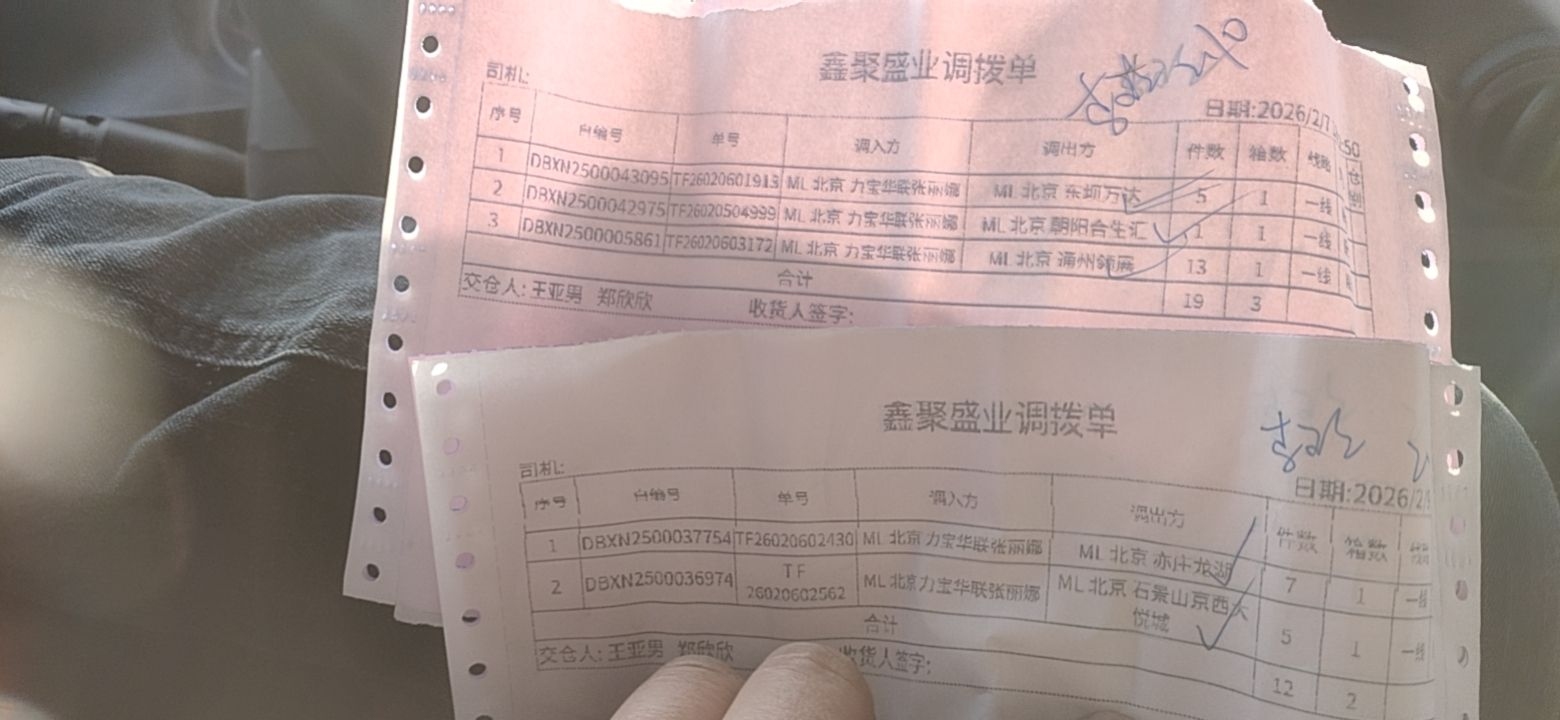 鑫聚盛业调拨单
司机:
日期:2026/2/7
序号 自编号 单号 调入方 调出方 件数 箱数 线路
1 DBXN2500043095 TF26020601913 ML 北京 力宝华联张丽娜 ML 北京 东坝万达 5 1 一线
2 DBXN2500042975 TF26020504999 ML 北京 力宝华联张丽娜 ML 北京 朝阳合生汇 1 1 一线
3 DBXN2500005861 TF26020603172 ML 北京 力宝华联张丽娜 ML 北京 通州领展 13 1 一线
合计 19 3
交仓人: 王亚男 郑欣欣 收货人签字:
鑫聚盛业调拨单
司机:
日期:2026/2/
序号 自编号 单号 调入方 调出方 件数 箱数 线路
1 DBXN2500037754 TF26020602430 ML 北京 力宝华联张丽娜 ML 北京 亦庄龙湖 7 1 一线
2 DBXN2500036974 TF 26020602562 ML 北京 力宝华联张丽娜 ML 北京 石景山京西大悦城 5 1 一线
合计 12 2
交仓人: 王亚男 郑欣欣 收货人签字: